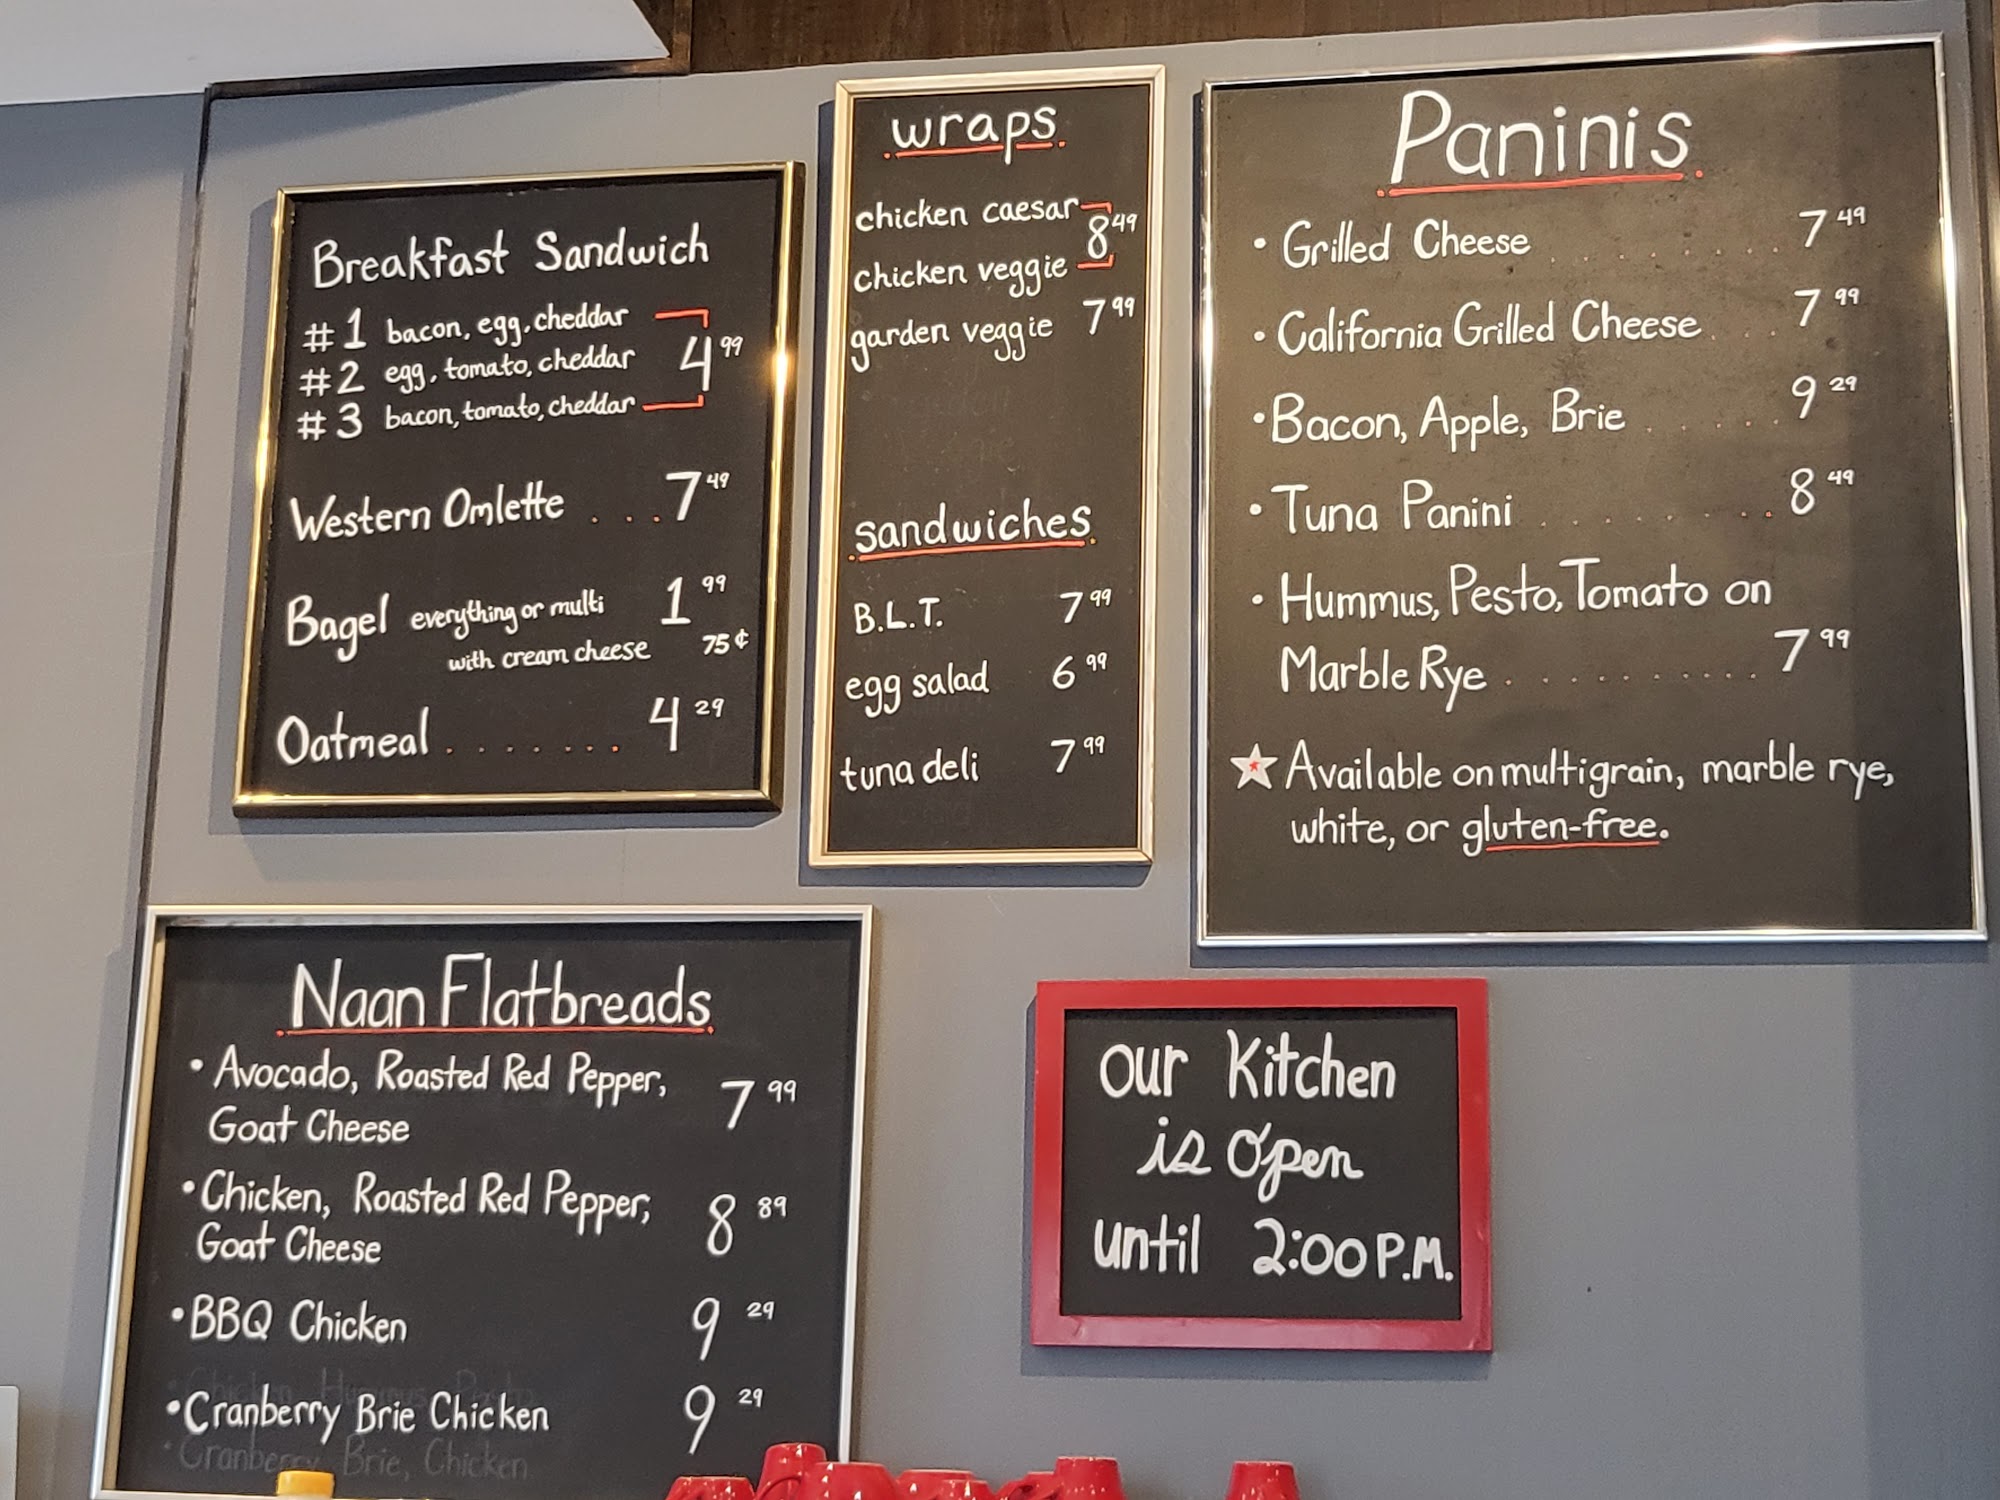 Breakfast Sandwich
#1 bacon, egg, cheddar
#2 egg, tomato, cheddar 4 99
#3 bacon, tomato, cheddar
Western Omlette . . . 7 49
Bagel everything or multi 1 99
with cream cheese 75¢
Oatmeal . . . . . . . 4 29
wraps
chicken caesar
8 49
chicken veggie
garden veggie 7 99
sandwiches
B.L.T. 7 99
egg salad 6 99
tuna deli 7 99
Paninis
• Grilled Cheese . . . . . . . . . 7 49
• California Grilled Cheese . . . 7 99
• Bacon, Apple, Brie . . . . . . 9 29
• Tuna Panini . . . . . . . . . 8 49
• Hummus, Pesto, Tomato on
Marble Rye . . . . . . . . . . 7 99
☆ Available on multigrain, marble rye,
white, or gluten-free.
Naan Flatbreads
• Avocado, Roasted Red Pepper,
Goat Cheese 7 99
• Chicken, Roasted Red Pepper,
Goat Cheese 8 89
• BBQ Chicken 9 29
Chicken, Hummus, Pesto
• Cranberry Brie Chicken 9 29
• Cranberry Brie, Chicken
Our Kitchen
is Open
until 2:00 P.M.